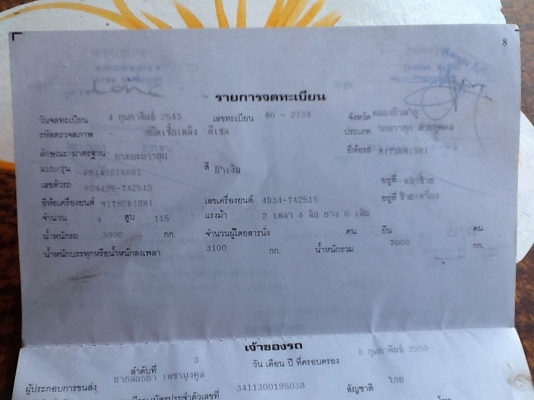 8
รายการจดทะเบียน
วันจดทะเบียน 4 กุมภาพันธ์ 2543 เลขทะเบียน 80 - 2738 จังหวัด
รหัสตรวจสภาพ ชนิดเชื้อเพลิง ดีเซล ประเภท
ลักษณะ/มาตรฐาน กระบะบรรทุก ยี่ห้อรถ MITSUBISHI
แบบ/รุ่น สี
เลขตัวรถ FE449E-TA2515 อยู่ที่
ยี่ห้อเครื่องยนต์ MITSUBISHI เลขเครื่องยนต์ 4D34-TA2515 อยู่ที่ ซ้ายเครื่อง
จำนวน 4 สูบ 115 แรงม้า 2 เพลา 4 ล้อ ยาง 6 เส้น
น้ำหนักรถ 3900 กก. จำนวนผู้โดยสารนั่ง คน ยืน คน
น้ำหนักบรรทุกหรือน้ำหนักลงเพลา 3100 กก. น้ำหนักรวม 7000 กก.
เจ้าของรถ
ลำดับที่ 3 วัน เดือน ปี ที่ครอบครอง 8 กุมภาพันธ์ 2550
ผู้ประกอบการขนส่ง
3411300195038 สัญชาติ ไทย